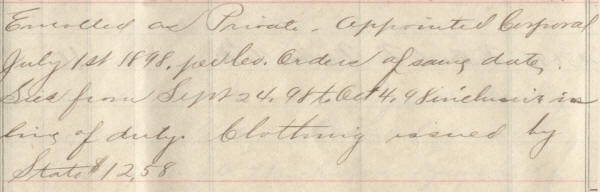 Enrolled as Private. Appointed Corporal
July 1st 1898, per Co. Orders of same date.
Sick from Sept 24, 98 to Oct 4, 98 inclusive in
line of duty. Clothing issued by
State $12,58